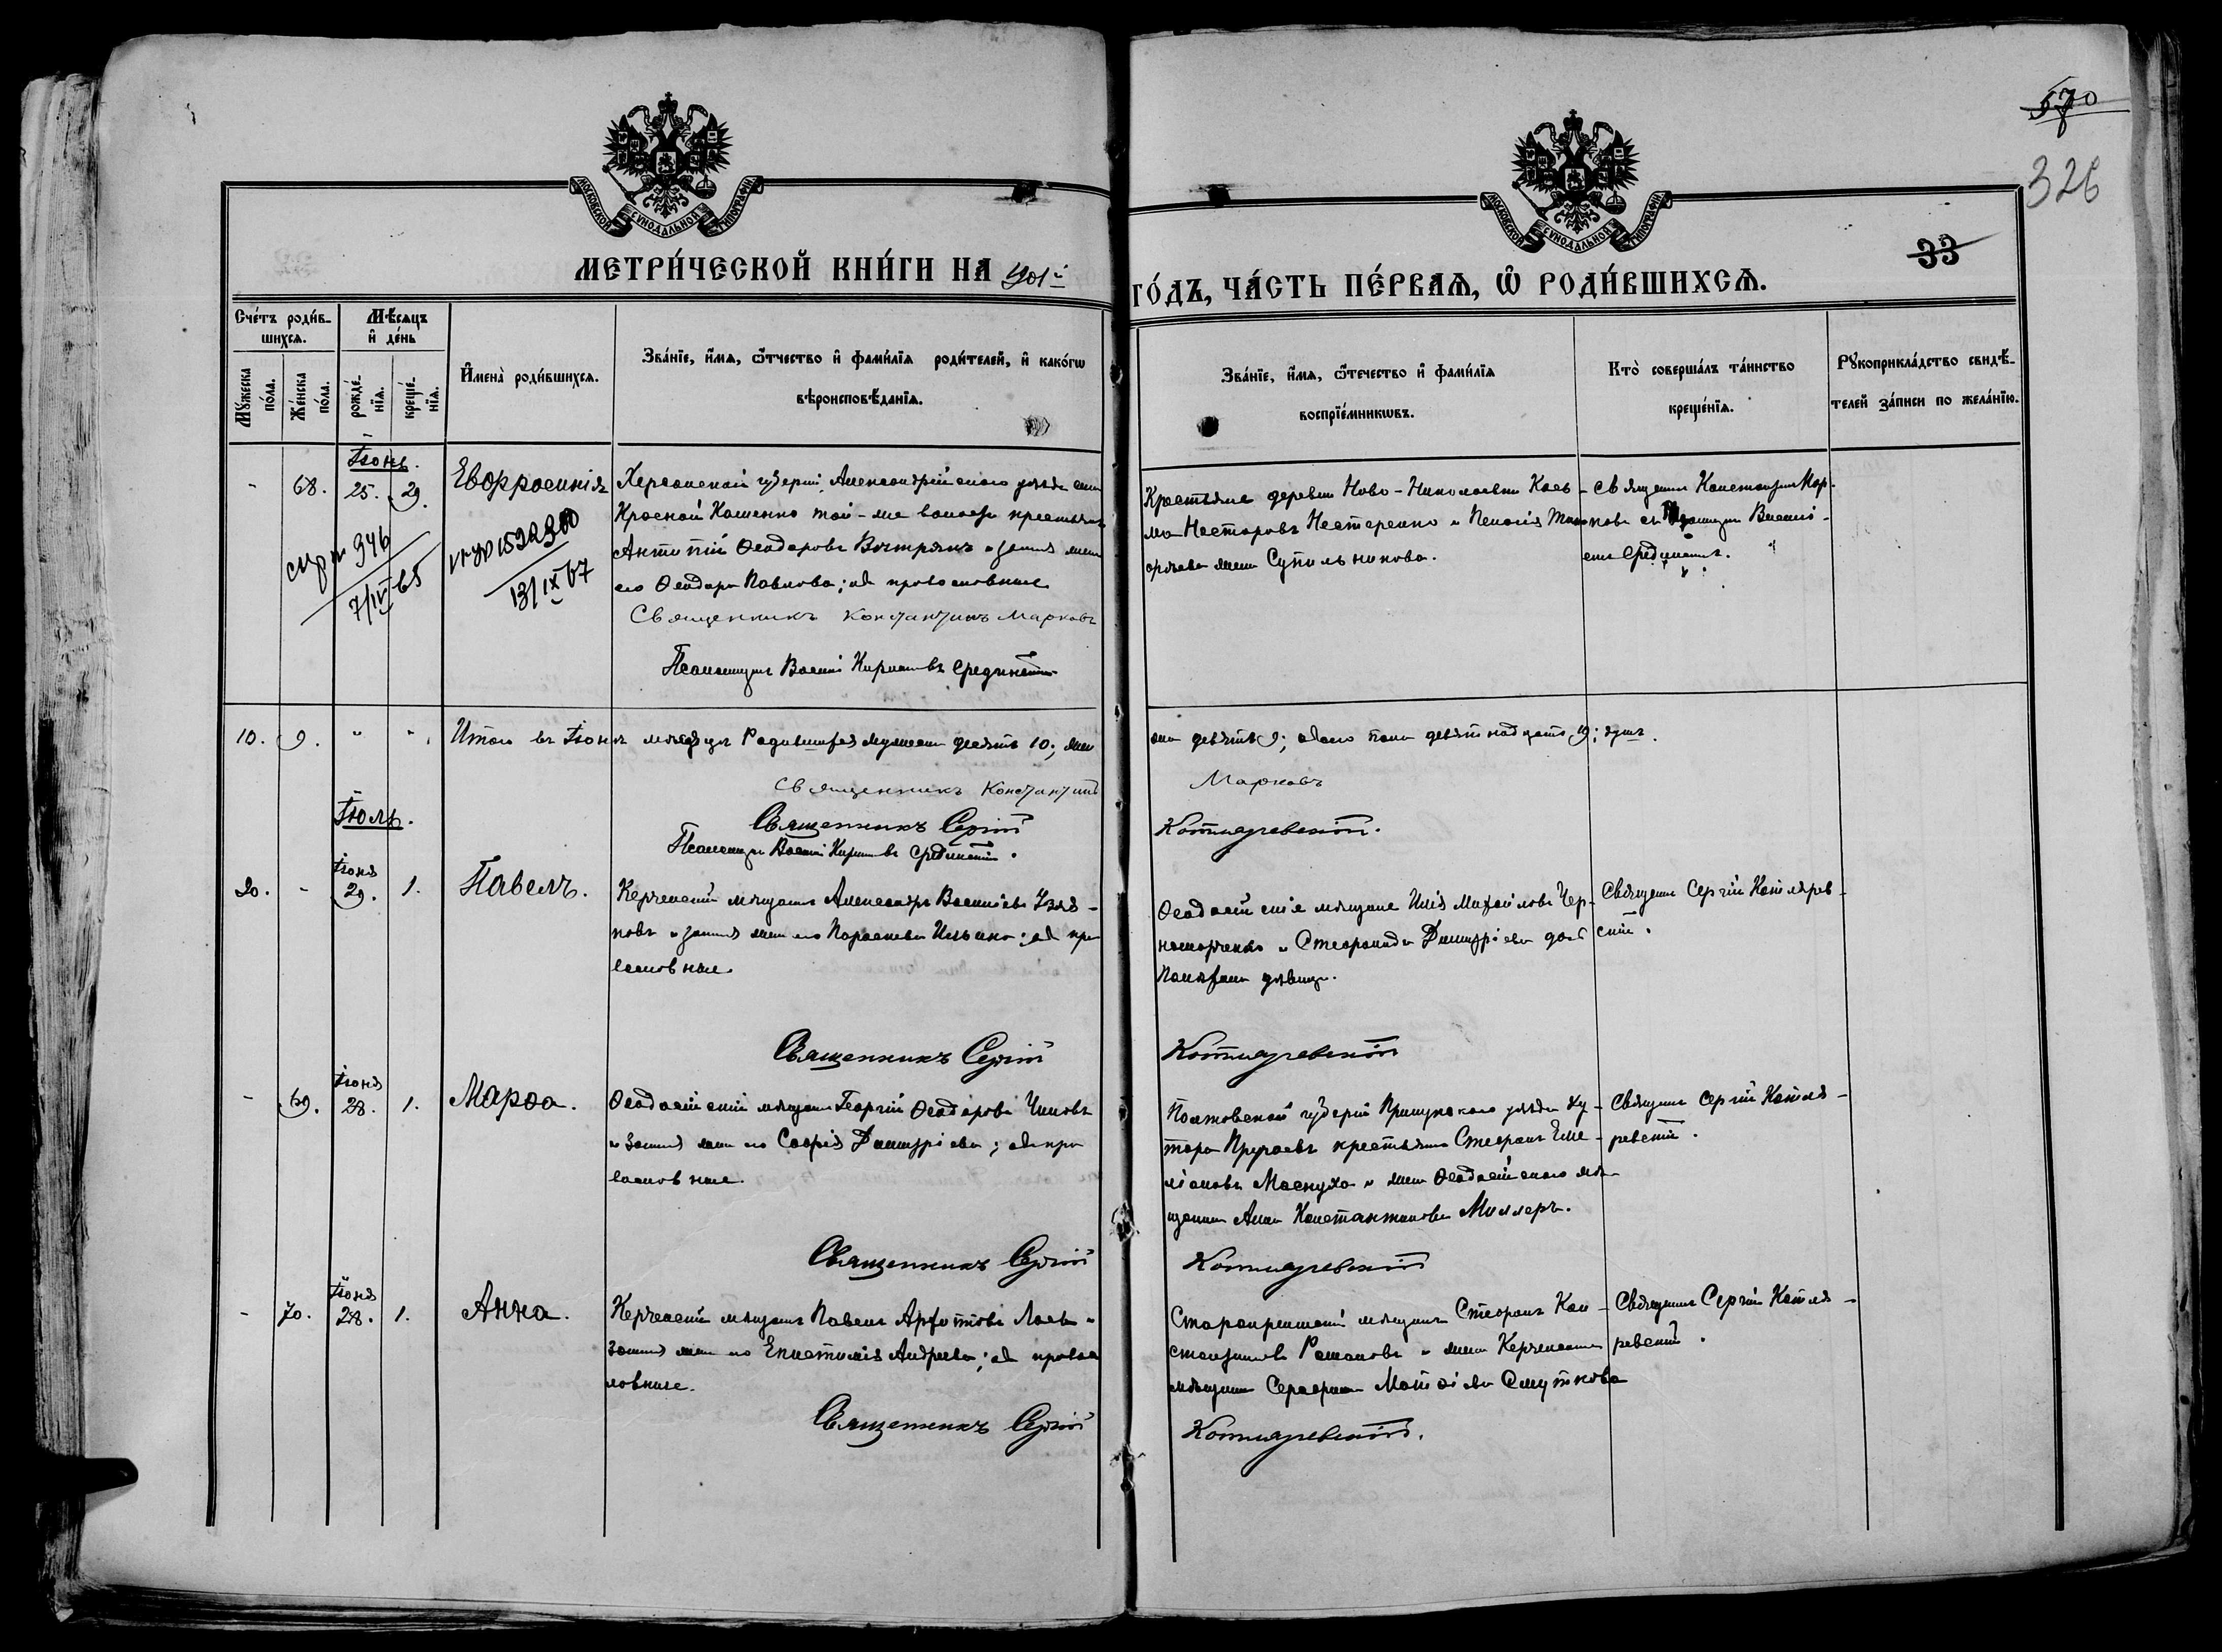 570
326
33
МОСКОВСКОЙ СѴНОДАЛЬНОЙ ТИПОГРАФІИ
МОСКОВСКОЙ СѴНОДАЛЬНОЙ ТИПОГРАФІИ
МЕТРИ́ЧЕСКОЙ КНИ́ГИ НА 901й
ГО́ДЪ, ЧА́СТЬ ПЕ́РВАѦ, Ѡ҆ РОДИ́ВШИХСѦ.
Сче́тъ роди́в-
шихсѧ.
Мꙋ́жеска по́ла.
Же́нска по́ла.
Мѣ́сѧцъ
и҆ де́нь
рожде́-
нїѧ.
креще́-
нїѧ.
И҆мена̀ роди́вшихсѧ.
Зва́нїе, и҆́мѧ, ѻ҆́тчество и҆ фами́лїѧ роди́телей, и҆ како́гѡ
вѣроисповѣ́данїѧ.
Зва́нїе, и҆́мѧ, ѻ҆́течество и҆ фами́лїѧ
воспрїе́мникѡвъ.
Кто̀ соверша́лъ та́инство
креще́нїѧ.
Рꙋкоприкла́дство свидѣ́-
телей за́писи по жела́нїю.
Іюнь.
- 68. 25. 29. Евфросинія
Херсонской губерніи, Александрійскаго уѣзда села
Красной Каменки той-же волости крестьянинъ
Антипій Ѳеодоровъ Вѣтрякъ и законная жена
его Ѳеодора Павлова; оба православные
Священникъ Константинъ Марковъ
Псаломщикъ Василій Кирилловъ Срединскій
Крестьяне деревни Ново-Николаевки Кось-
ма Несторовъ Нестеренко и Пелагія
жена Супильникова.
Священникъ Константинъ Мар-
ковъ съ Псаломщикомъ Василі-
емъ Срединскимъ.
346
7/IV 65
13/IX 67
10. 9. " " Итого въ Іюнѣ мѣсяцѣ Родившихся мужеска десять 10; жен
ска девять 9; обоего пола девятнадцать 19; душъ.
Священникъ Константинъ
Марковъ
Священникъ Сергій
Котляревскій.
Псаломщикъ Василій Кирилловъ Срединскій.
Іюль.
Іюня
20. - 29. 1. Павелъ.
Керченскій мѣщанинъ Александръ Васильевъ Узя-
ковъ и законная жена его Параскева Ильина; оба пра
вославные.
Ѳеодосійскіе мѣщане Илія Михайловъ Чер-
номорченко и Стефанида Димитріева дочь
дѣвица.
Священникъ Сергій Котлярев-
скій.
Священникъ Сергій
Котляревскій
Іюня
- 69. 28. 1. Марѳа.
Ѳеодосійскій мѣщанинъ Георгій Ѳеодоровъ Чиковъ
и законная жена его Софія Димитріева; оба пра
вославные.
Полтавской губерніи Прилукскаго уѣзда ху-
тора крестьянинъ Стефанъ Еме-
ліановъ Маснуха и жена Ѳеодосійскаго мѣ-
щанина Анна Константинова Миллеръ.
Священникъ Сергій Котля-
ревскій.
Священникъ Сергій
Котляревскій
Іюня
- 70. 28. 1. Анна.
Керченскій мѣщанинъ Павелъ и
законная жена его Епистимія Андреева; оба правос
лавные.
Старокрымскій мѣщанинъ Стефанъ Кон-
стантиновъ Романовъ и жена Керченскаго
мѣщанина Серафима Матѳіева Смуткова
Священникъ Сергій Котля-
ревскій.
Священникъ Сергій
Котляревскій.